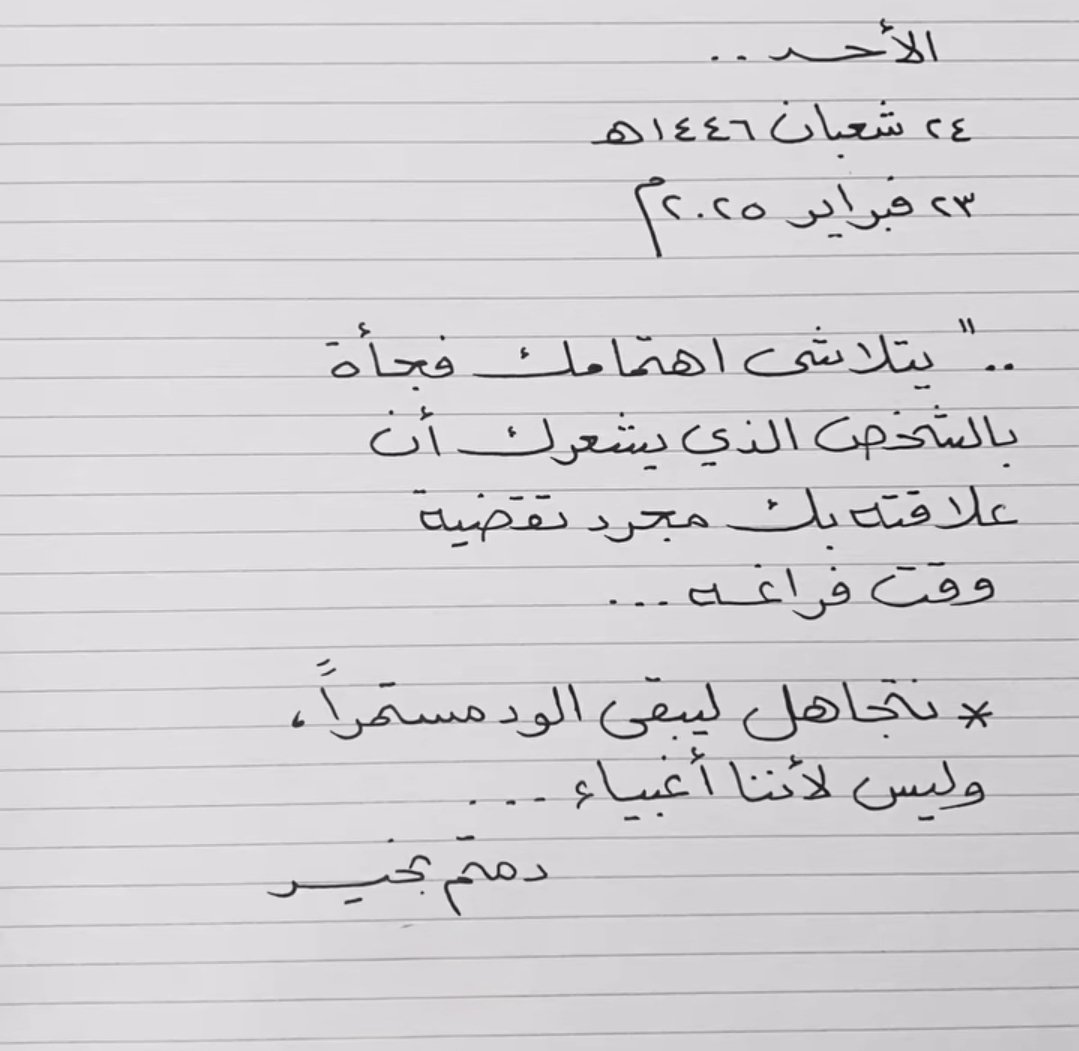 الأحد ..
٢٤ شعبان ١٤٤٦ه
٢٣ فبراير ٢٠٢٥م
.." يتلاشى اهتمامك فجأة
بالشخص الذي يشعرك أن
علاقته بك مجرد تقضية
وقت فراغه ...
* نتجاهل ليبقى الود مستمراً ،
وليس لأننا أغبياء ...
دمتم بخير